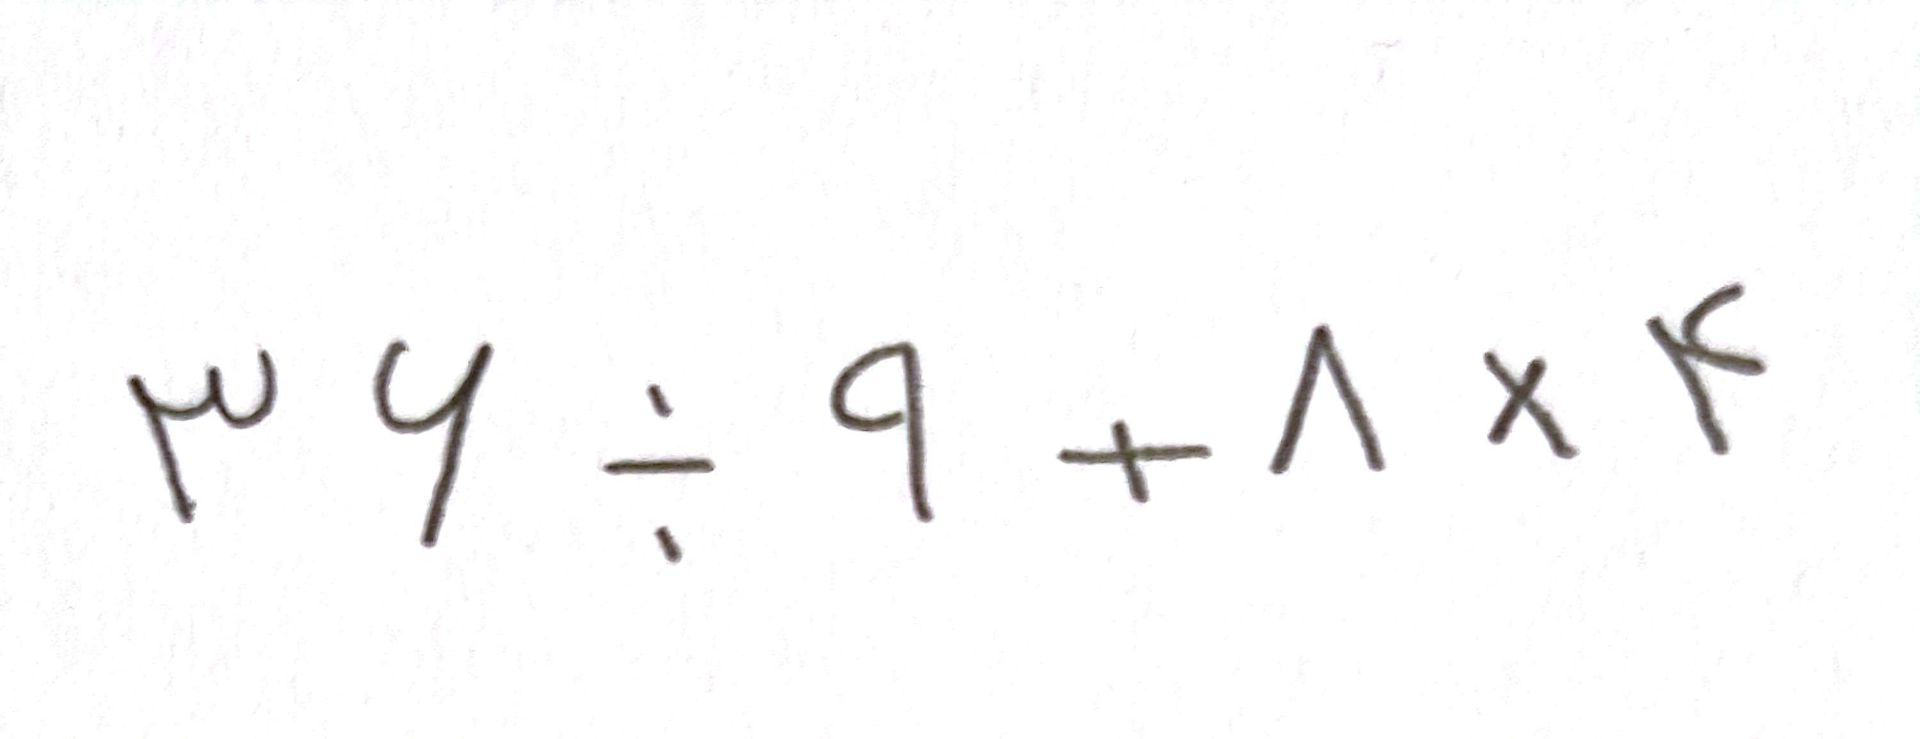 ۳۶ ÷ ۹ + ۸ × ۴